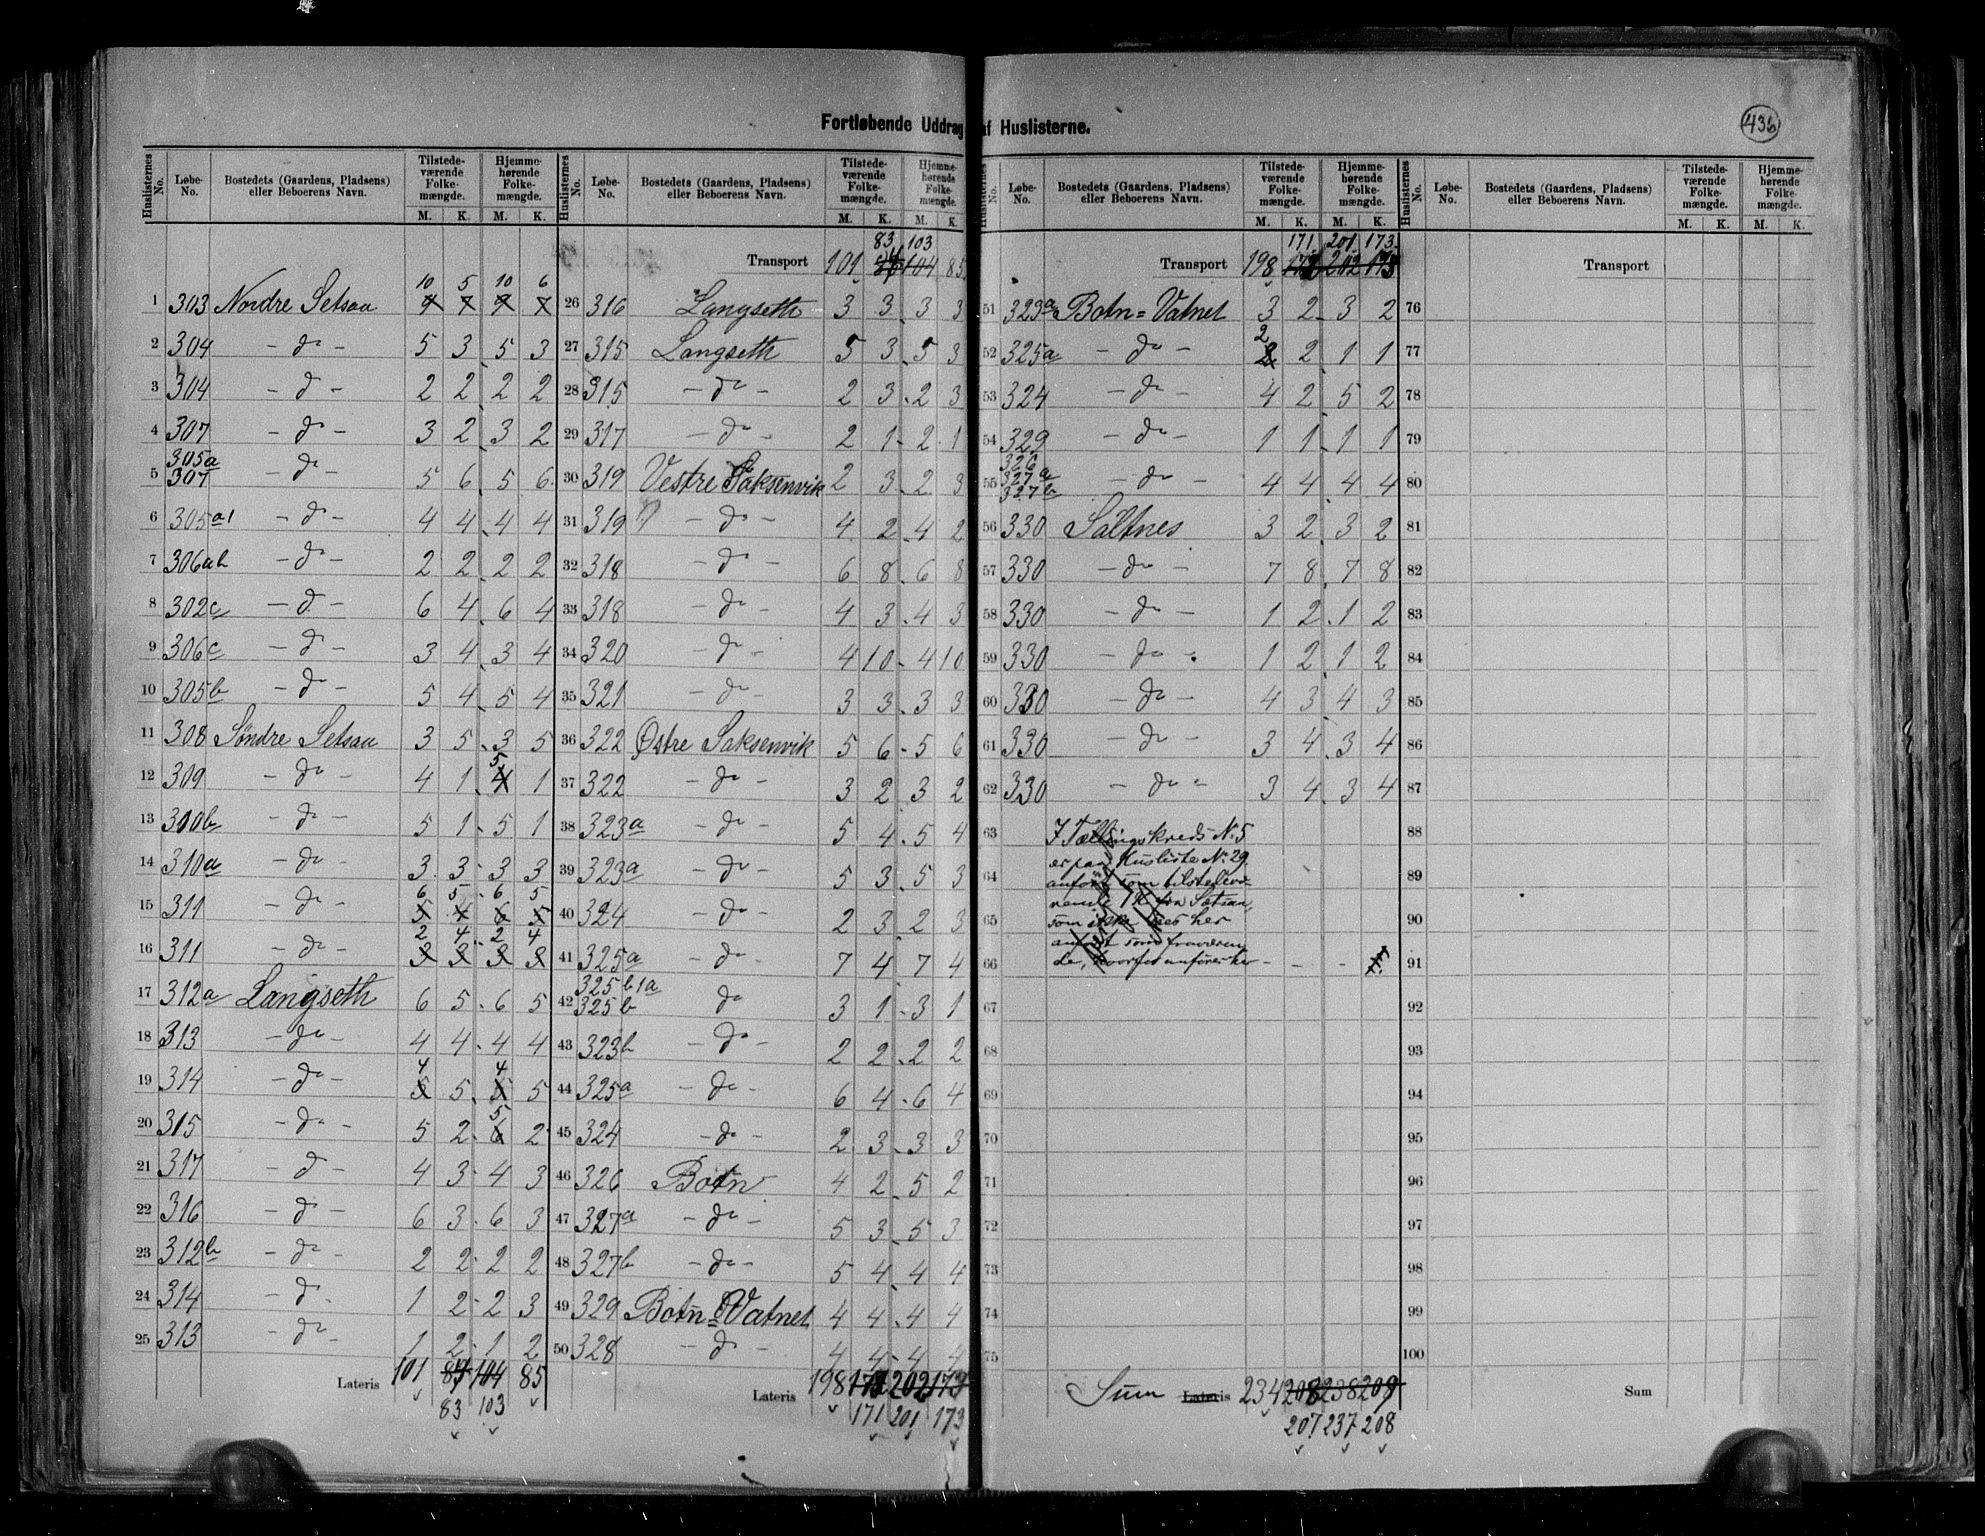 Fortløbende Uddrag af Huslisterne.
436
Huslisternes No. Løbe-No. Bostedets (Gaardens, Pladsens) eller Beboerens Navn. Tilstedeværende Folkemængde. M. K. Hjemmehørende Folkemængde. M. K.
10 5 10 6
1 303 Nordre Setsaa
2 304 - do - 5 3 5 3
3 304 - do - 2 2 2 2
4 307 - do - 3 2 3 2
5 305a 307 - do - 5 6 5 6
6 305a1 - do - 4 4 4 4
7 306ab - do - 2 2 2 2
8 302c - do - 6 4 6 4
9 306c - do - 3 4 3 4
10 305b - do - 5 4 5 4
11 308 Søndre Setsaa 3 5 3 5
12 309 - do - 4 1 5 4 1
13 300b - do - 5 1 5 1
14 310a - do - 3 3 3 3
6 5 6 5
15 311 - do - 5 4 6 5
2 4 2 4
16 311 - do - 3 3 3 3
17 312a Langseth 6 5 6 5
18 313 - do - 4 4 4 4
4 4
19 314 - do - 5 5 5 5
5
20 315 - do - 5 2 6 2
21 317 - do - 4 3 4 3
22 316 - do - 6 3 6 3
23 312b - do - 2 2 2 2
24 314 - do - 1 2 2 3
25 313 - do - 1 2 1 2
Lateris 101 84 104 85
83 103
Huslisternes No. Løbe-No. Bostedets (Gaardens, Pladsens) eller Beboerens Navn. Tilstedeværende Folkemængde. M. K. Hjemmehørende Folkemængde. M. K.
83 103
Transport 101 104 85
26 316 Langseth 3 3 3 3
27 315 Langseth 5 3 5 3
28 315 - do - 2 3 2 3
29 317 - do - 2 1 2 1
30 319 Vestre Saksenvik 2 3 2 3
31 319 - do - 4 2 4 2
32 318 - do - 6 8 6 8
33 318 - do - 4 3 4 3
34 320 - do - 4 10 4 10
35 321 - do - 3 3 3 3
36 322 Østre Saksenvik 5 6 5 6
37 322 - do - 3 2 3 2
38 323a - do - 5 4 5 4
39 323a - do - 5 3 5 3
40 324 - do - 2 3 2 3
41 325a - do - 7 4 7 4
42 325b1a 325b do 3 1 3 1
43 323b - do - 2 2 2 2
44 325a - do - 6 4 6 4
45 324 - do - 2 3 3 3
46 326 Botn 4 2 5 2
47 327a - do - 5 3 5 3
48 327b - do - 5 4 4 4
49 329 Botn=Vatnet 4 4 4 4
50 328 - do - 4 4 4 4
Lateris 198 172 202 173
171 201 173
Huslisternes No. Løbe-No. Bostedets (Gaardens, Pladsens) eller Beboerens Navn. Tilstedeværende Folkemængde. M. K. Hjemmehørende Folkemængde. M. K.
171 201 173
Transport 198 172 202 173
51 323a Botn=Vatnet 3 2 3 2
2
52 325a - do - 2 2 1 1
53 324 - do - 4 2 5 2
54 329 - do - 1 1 1 1
55 326 327a 327b - do - 4 4 4 4
56 330 Saltnes 3 2 3 2
57 330 - do - 7 8 7 8
58 330 - do - 1 2 1 2
59 330 - do - 1 2 1 2
60 330 - do - 4 3 4 3
61 330 - do - 3 4 3 4
62 330 - do - 3 4 3 4
63 I Tællingskreds No. 5
er paa Husliste No. 29
64 anført som tilstedevæ-
rende 1 K fra Setsaa,
65 som ikke sees her
anført som fraværen-
66 de, hvorfor anføres her - - - 1
67
68
69
70
71
72
73
74
75
Sum Lateris 234 208 238 209
207 237 208
Huslisternes No. Løbe-No. Bostedets (Gaardens, Pladsens) eller Beboerens Navn. Tilstedeværende Folkemængde. M. K. Hjemmehørende Folkemængde. M. K.
Transport
76
77
78
79
80
81
82
83
84
85
86
87
88
89
90
91
92
93
94
95
96
97
98
99
100
Sum